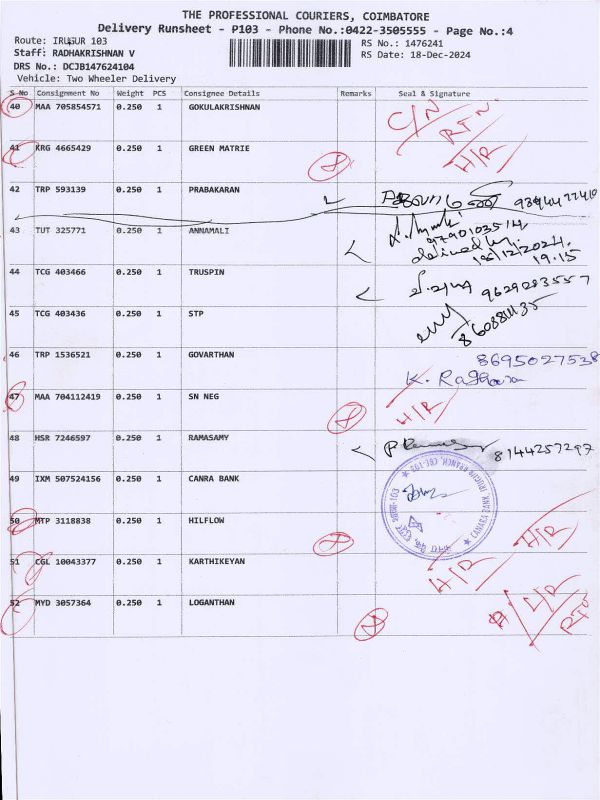 THE PROFESSIONAL COURIERS, COIMBATORE
Delivery Runsheet - P103 - Phone No.:0422-3505555 - Page No.:4
Route: IRUGUR 103 RS No.: 1476241
Staff: RADHAKRISHNAN V RS Date: 18-Dec-2024
DRS No.: DCJB147624104
Vehicle: Two Wheeler Delivery
S No Consignment No Weight PCS Consignee Details Remarks Seal & Signature
40 MAA 705854571 0.250 1 GOKULAKRISHNAN C/N RTN.
41 KRG 4665429 0.250 1 GREEN MATRIE H/R
42 TRP 593139 0.250 1 PRABAKARAN
43 TUT 325771 0.250 1 ANNAMALI 9790103514
19.15
44 TCG 403466 0.250 1 TRUSPIN 9629283557
45 TCG 403436 0.250 1 STP
46 TRP 1536521 0.250 1 GOVARTHAN 8695027538
47 MAA 704112419 0.250 1 SN NEG H/R
48 HSR 7246597 0.250 1 RAMASAMY 8144257297
49 IXM 507524156 0.250 1 CANRA BANK
50 MTP 3118838 0.250 1 HILFLOW H/R
51 CGL 10043377 0.250 1 KARTHIKEYAN H/R
52 MYD 3057364 0.250 1 LOGANTHAN